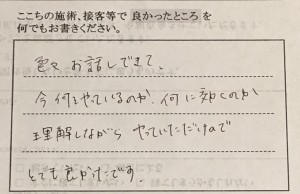 ここちの施術、接客等で良かったところを
何でもお書きください。
色々お話しできて、
今何をやっているのか、何に効くのか
理解しながらやっていただけので
とても良かったです。